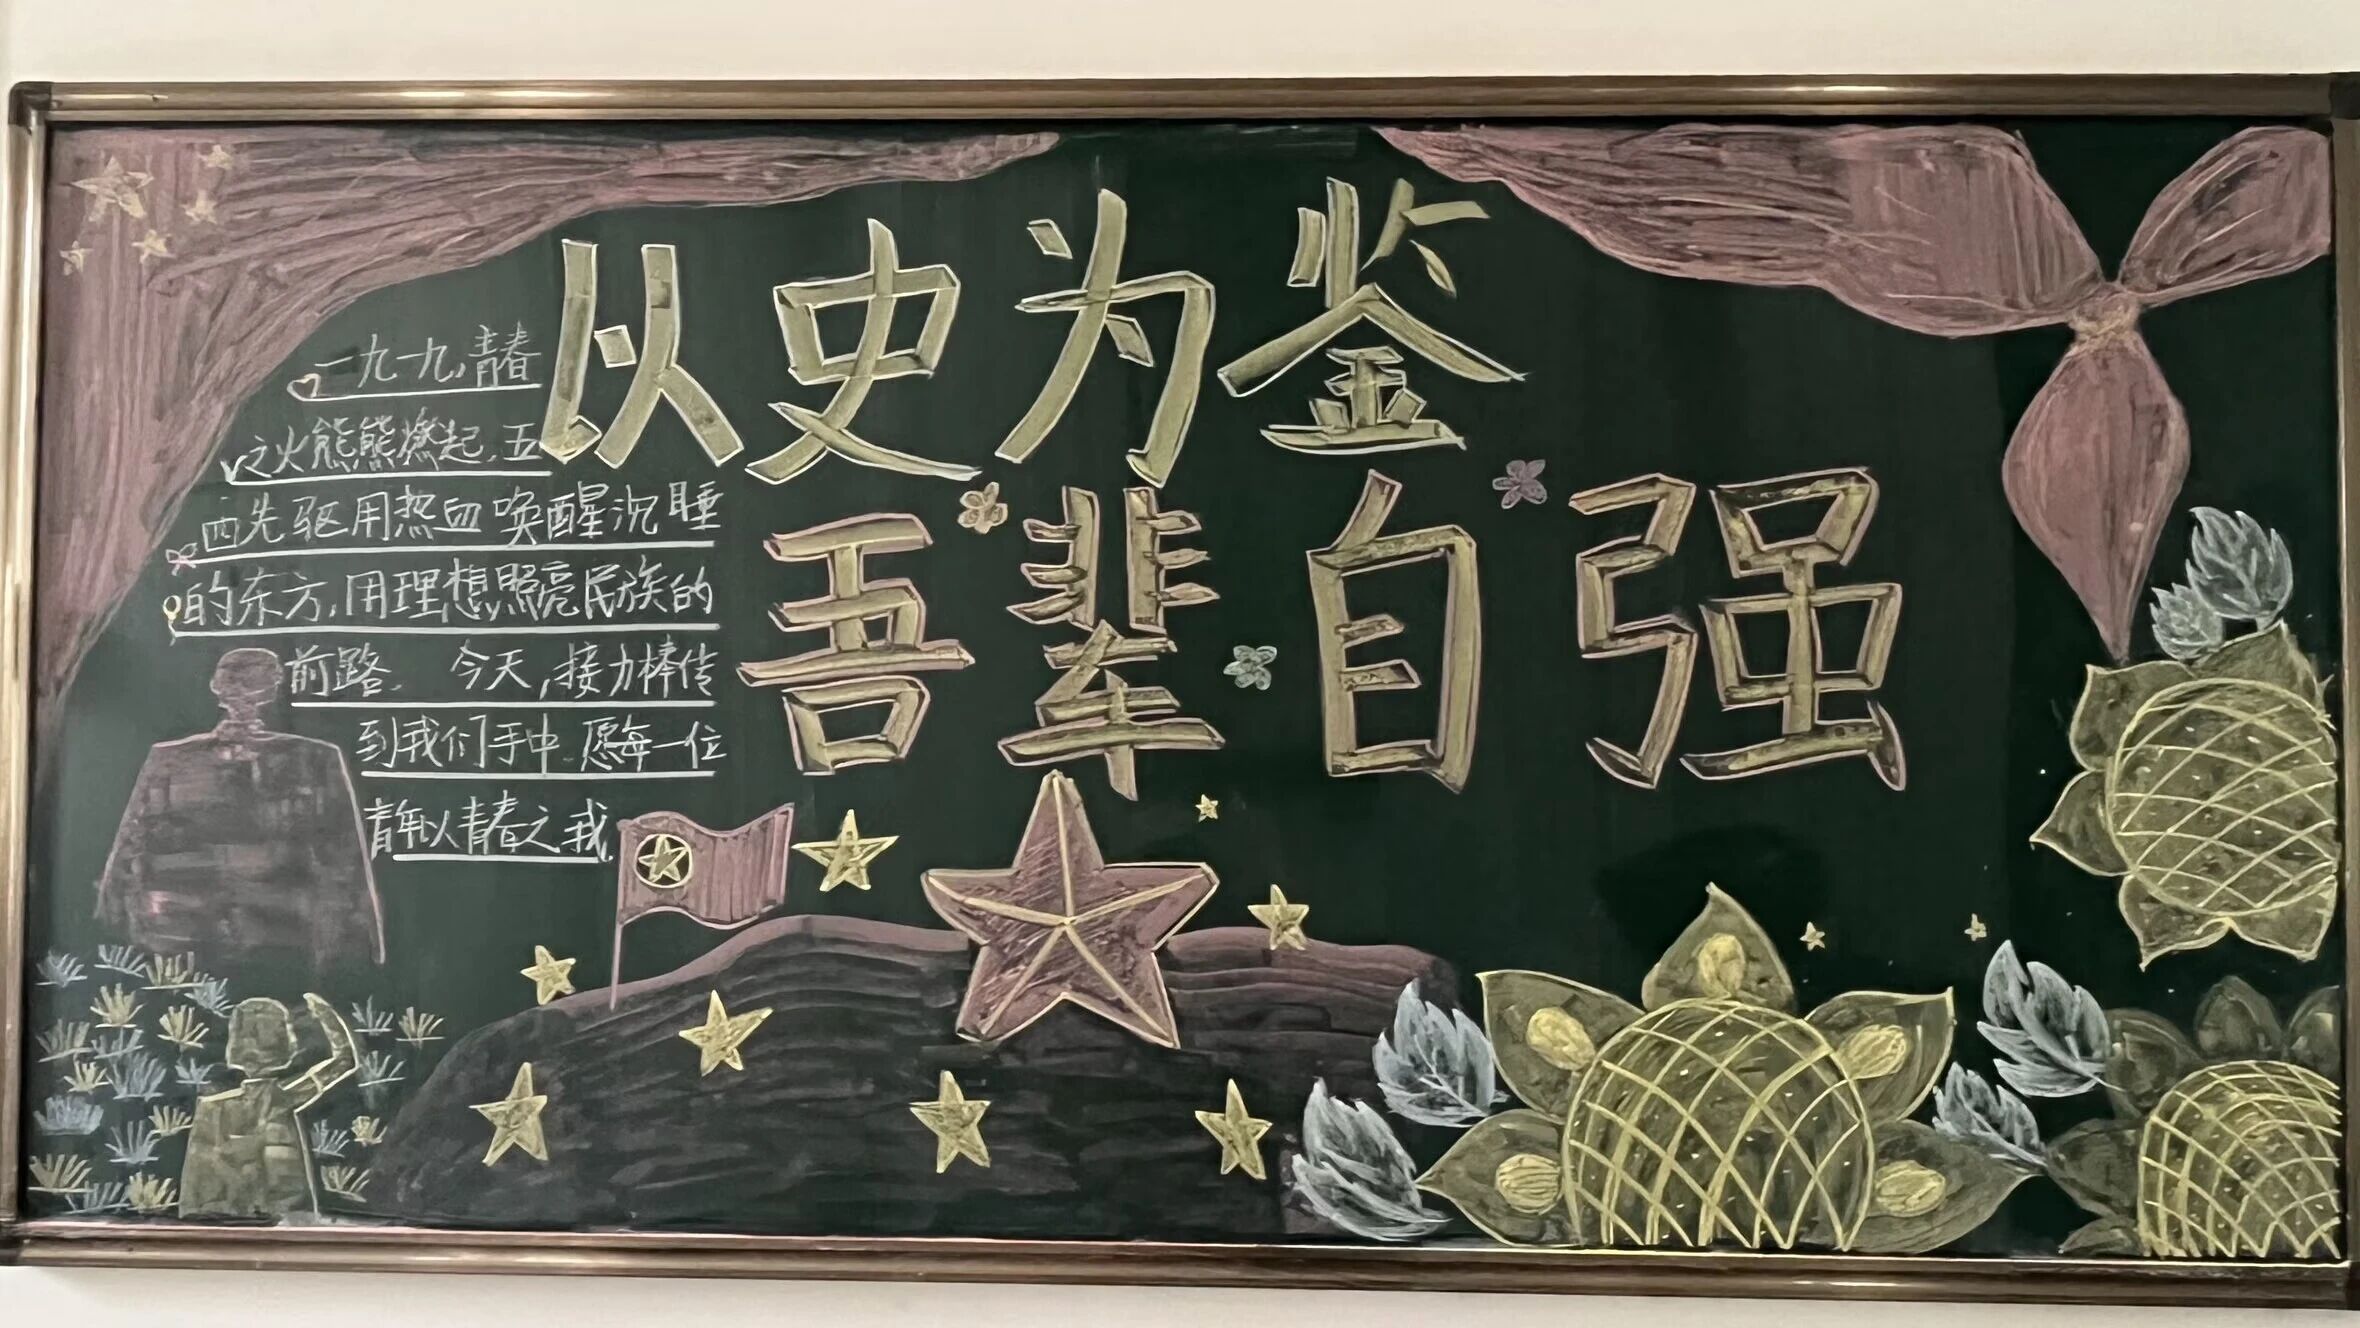 以史为鉴
吾辈自强
一九一九,青春
之火熊熊燃起,五
四先驱用热血唤醒沉睡
的东方,用理想照亮民族的
前路. 今天,接力棒传
到我们手中.愿每一位
青年以青春之我